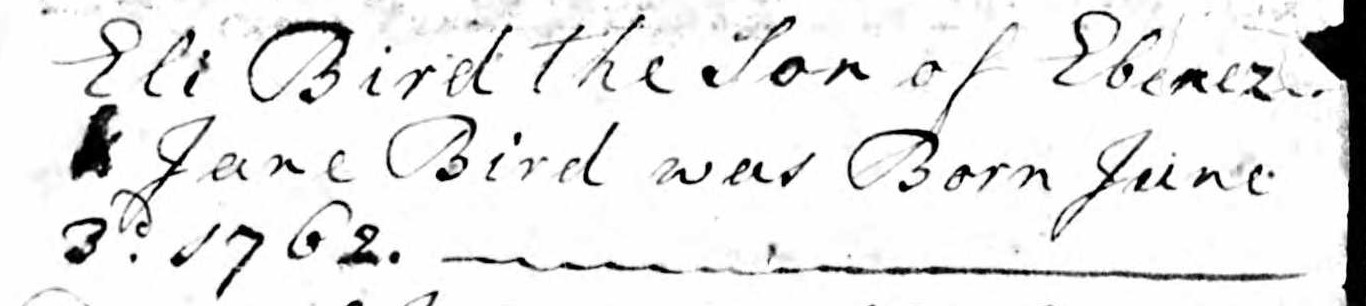 Eli Bird the Son of Ebenez.
& Jane Bird was Born June
3d. 1762.